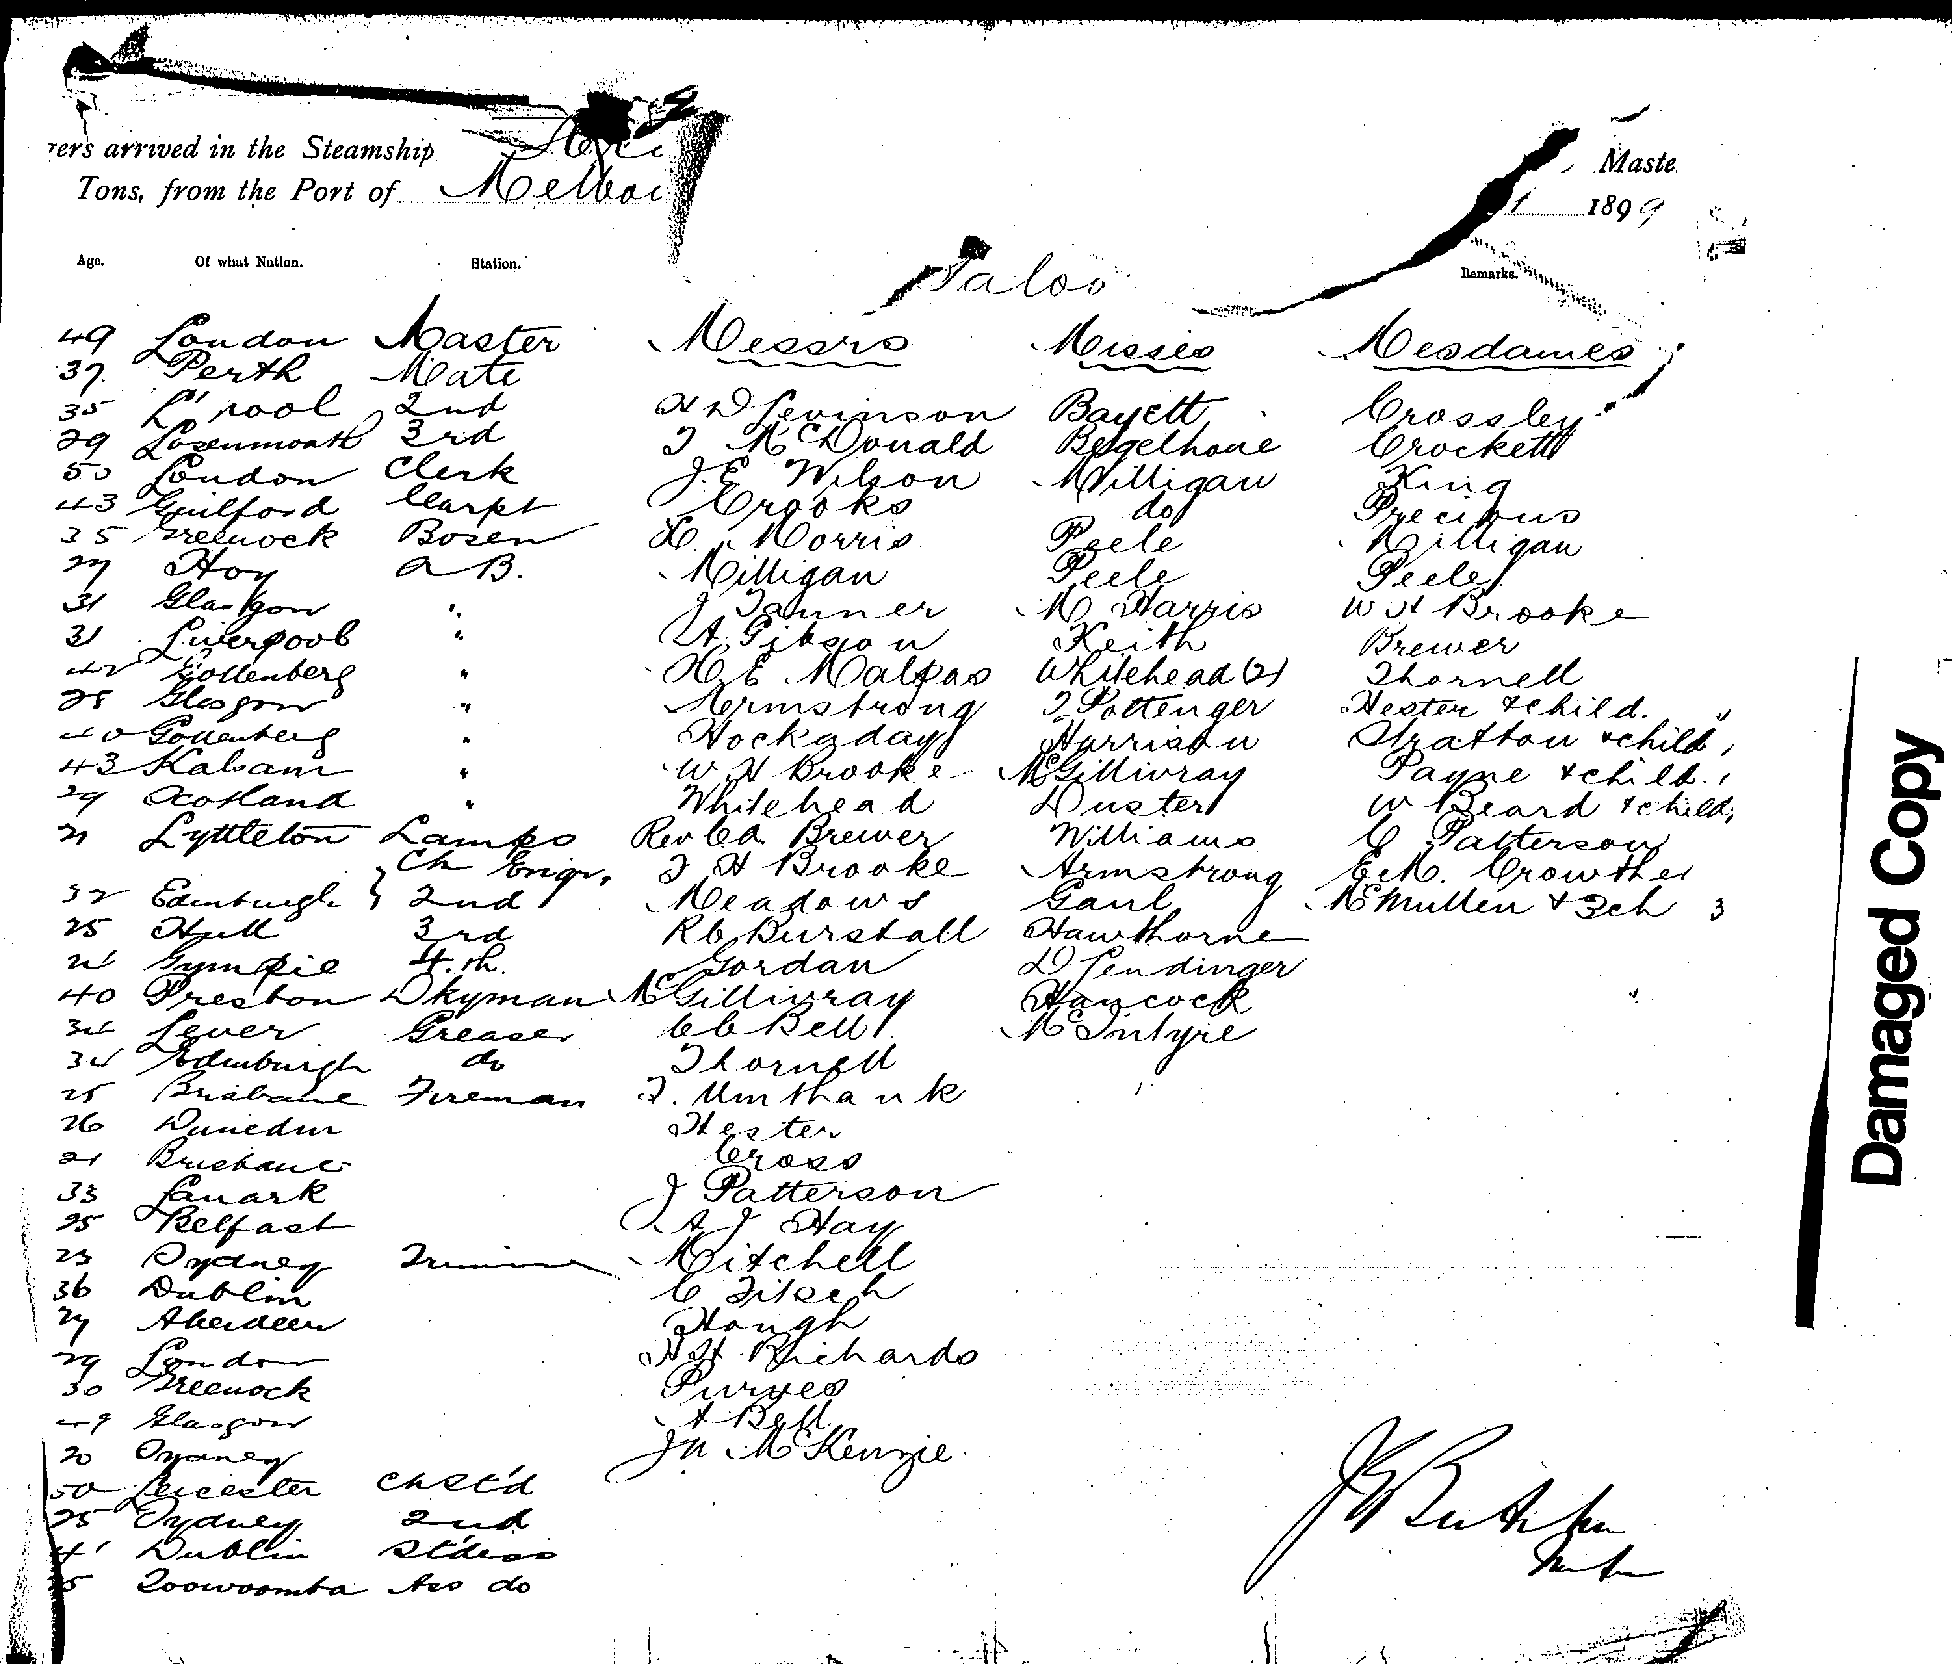 arrived in the Steamship
Maste
Tons, from the Port of Melbo
1899
Age. Of what Nation. Station. Remarks.
Saloo
49 London Master Messrs Misses Mesdames
37 Perth Mate
35 L'pool 2nd H D Levinson Bayett Crossley
29 3rd J McDonald Begelhone Crockett
50 London Clerk J.E. Wilson Milligan King
43 Guilford Carpt Crooks do Precious
35 Greenock Bosen H. Morris Peele Milligan
27 Hoy A B. Milligan Peele Peele
31 Glasgow " J Tanner M Harris W H Brooke
31 Liverpool " Gibson Keith Brewer
42 Gottenberg " H E Malpas Whitehead (2) Thornell
28 Glasgow " Armstrong J Pottenger Hester & child. "
40 Gottenberg " Hockaday Harrison Stratton & child,
43 " W H Brooke McGillivray Payne & child.
29 Scotland " Whitehead Duster W Beard & child,
21 Lyttleton Lamps Rev Brewer Williams C Patterson
Ch Engr. J H Brooke Armstrong E.M. Crowther
32 Edinburgh } 2nd Meadows Gaul McMullen & 3ch 3
25 Hull 3rd Burstall Hawthorne
Gympie 4.th. Gordan D Lendinger
40 Preston Dkyman McGillivray Hancock
34 Greaser Bell McIntyre
34 Edinburgh do Thornell
25 Brisbane Fireman J. Umthank
26 Dunedin Hester
21 Brisbane Cross
33 Lanark J Patterson
25 Belfast A J Hay
23 Sydney Mitchell
36 Dublin C
27 Aberdeen Hough
29 London H H Richards
30 Greenock Purves
49 Glasgow A Bell
20 Sydney McKenzie
50 Leicester Ch St'd
25 Sydney 2nd
Dublin St'dess
Toowoomba Ass do
Damaged Copy